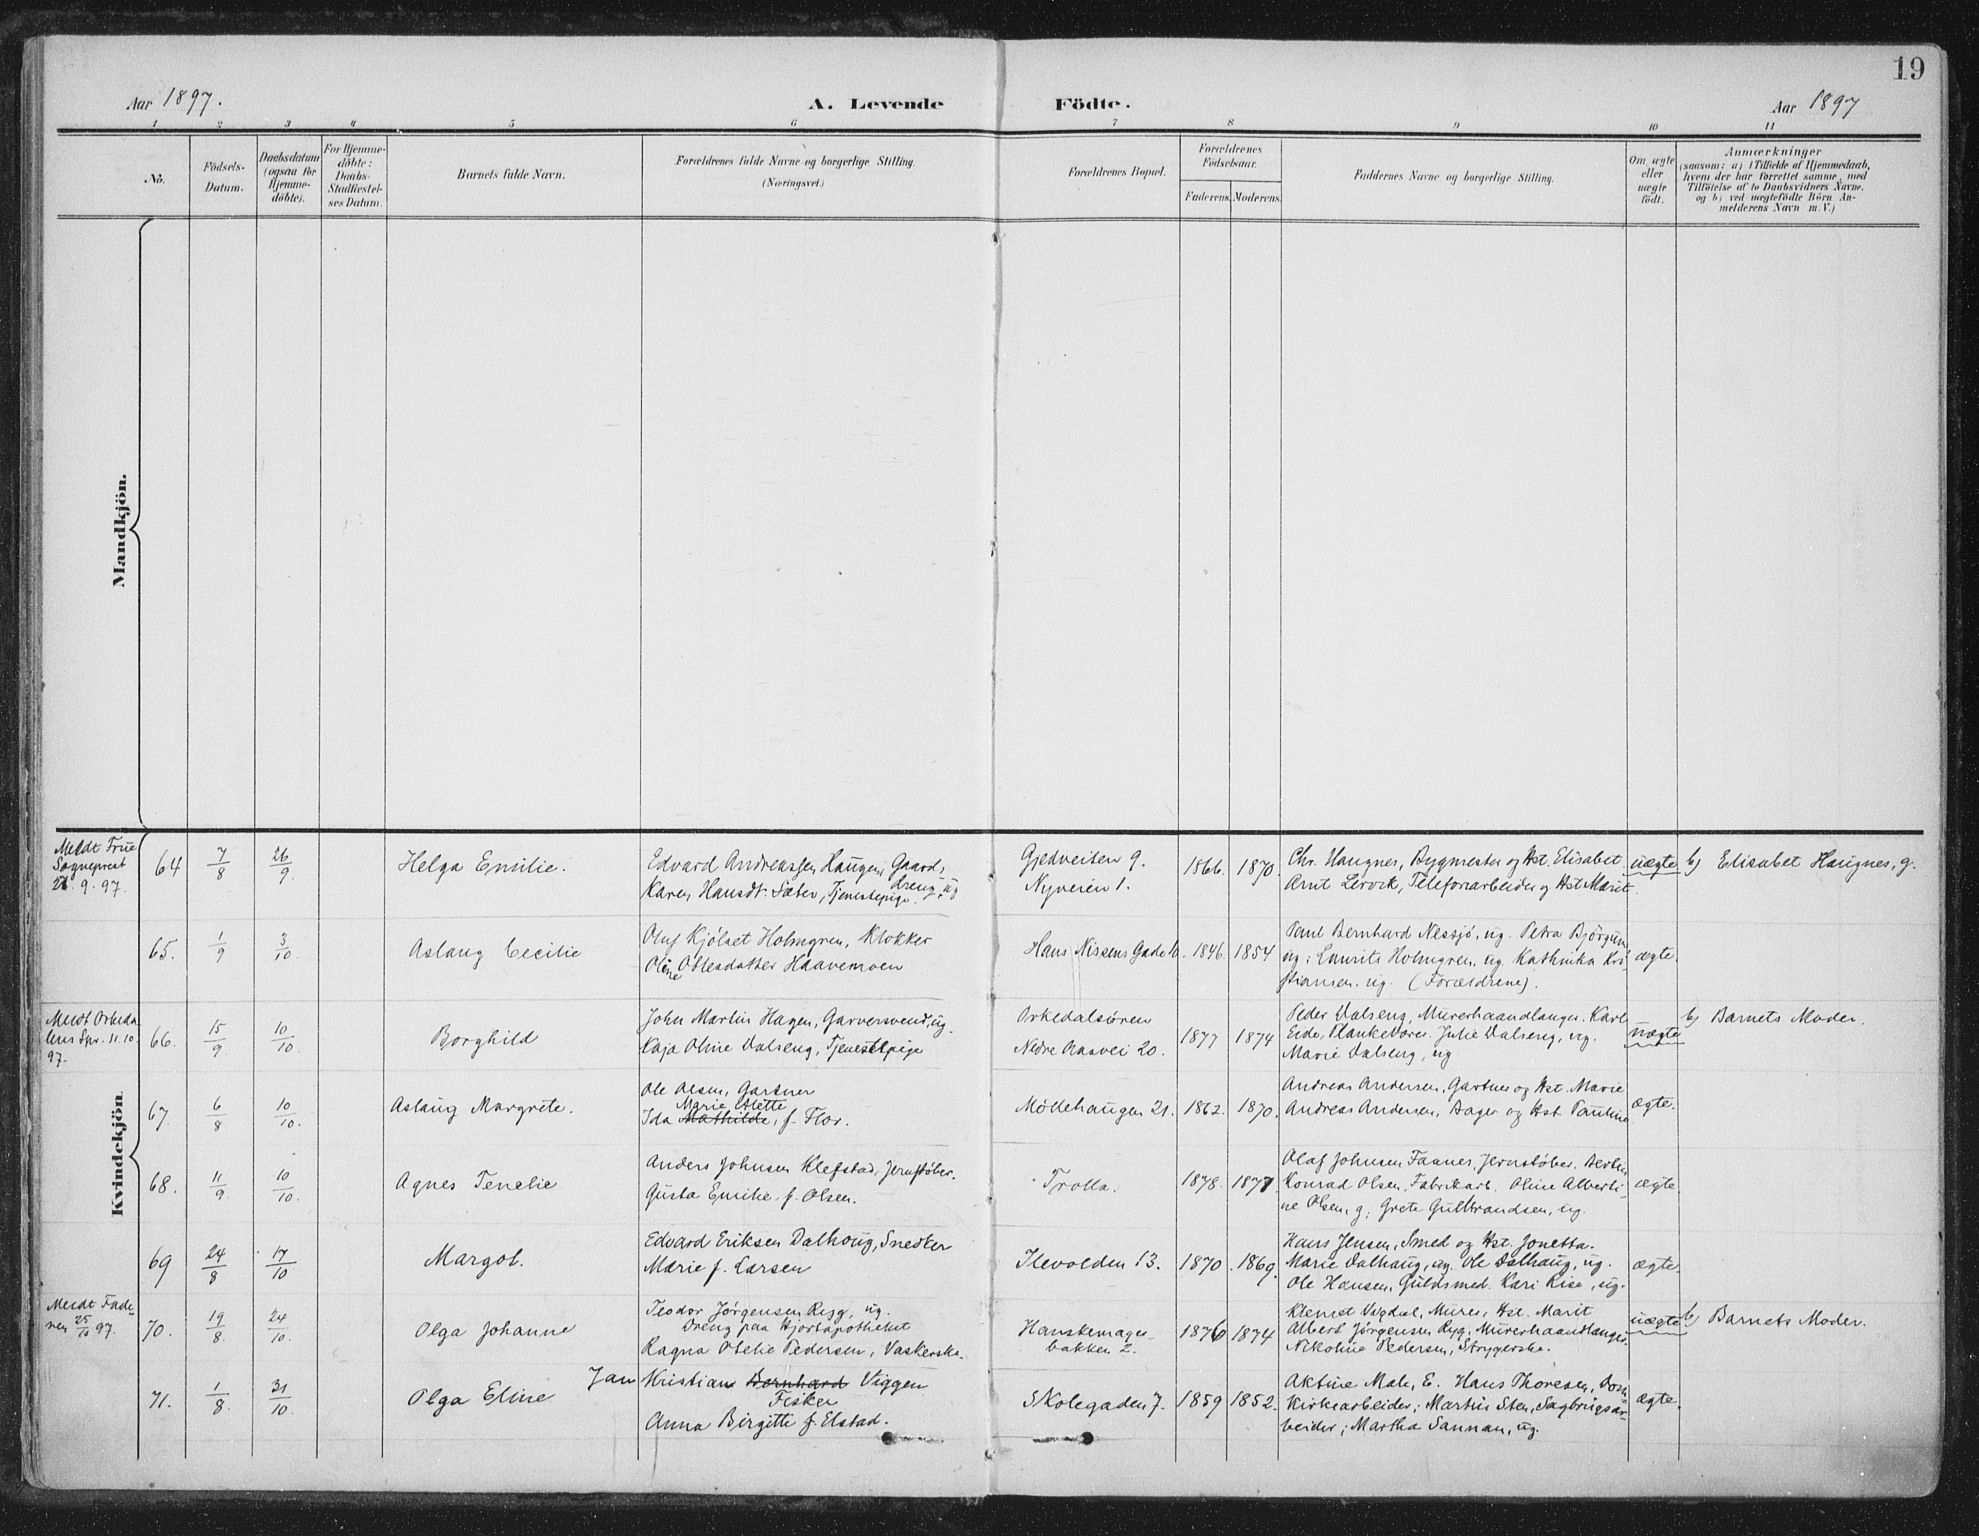 19
Aar 1897.
A. Levende
Födte.
Aar 1897
1 2 3 4 5 6 7 8 9 10 11
No.
Födsels-
Datum.
Daabsdatum
(ogsaa for
Hjemme-
döbte).
For Hjemme-
döbte:
Daabs-
Stadfæstel-
ses Datum.
Barnets fulde Navn.
Forældrenes fulde Navne og borgerlige Stilling.
(Næringsvei.)
Forældrenes Bopæl.
Forældrenes
Födselsaar.
Faderens. Moderens.
Faddernes Navne og borgerlige Stilling.
Om ægte
eller
uægte
födt.
Anmærkninger
(saasom: a) i Tilfælde af Hjemmedaab,
hvem der har forrettet samme, med
Tilföielse af to Daabsvidners Navne,
og b) ved uægtefödte Börn An-
melderens Navn m. V.)
Mandkjön.
Kvindekjön.
Meldt Frue
Sogneprest
28. 9. 97.
64 7/8 26/9
Helga Emilie.
Edvard Andreassen Haugen, Gaards-
dreng, ug
Karen Hansdt. Sæter, Tjenestepige.
Gjedveiten 9.
Nyveien 1.
1866. 1870.
Chr. Haugnes, Bygmester og Hst. Elisabet.
Arnt Lervik, Telefonarbeider og Hst Marit.
uægte
b) Elisabet Haugnes, g.
65. 1/9 3/10
Aslaug Cecilie
Oluf Kjölset Holmgren, Klokker
Oline Ottesdatter Haavemoen
Hans Nissens Gade 10.
1846. 1854
Paul Bernhard Nessjö, ug. Petra Björgum,
ug; Laurits Holmgren, ug. Kathinka Kri-
stiansen. ug. (Forældrene).
ægte.
Meldt Orkeda-
lens Spr. 11. 10.
97.
66. 15/9 10/10
Borghild
John Martin Hagen, Garversvend, ug.
Kaja Oline Dalseng, Tjenestepige
Orkedalsören
Nedre Aasvei 20.
1877 1874
Peder Dalseng, Murerhaandlanger. Karl
Eide, Plankebærer. Julie Dalseng, ug.
Marie Dalseng, ug
uægte
b) Barnets Moder.
67. 6/8 10/10
Aslaug Margrete.
Ole Olsen, Gartner
Marie Alette
Ida Mathilde, f. Flor.
Möllehaugen 21.
1862. 1870.
Andreas Andersen, Gartner og Hst. Marie
Andreas Andersen, Bager og Hst Pauline
ægte.
68. 11/9 10/10
Agnes Tenelie
Anders Johnsen Klefstad, Jernstöber.
Gusta Emilie f. Olsen.
Trolla.
1878. 1877.
Olaf Johnsen Faanes, Jernstöber. Bertin
Konrad Olsen, Fabrikarb. Oline Alberti-
ne Olsen, g; Grete Gulbrandsen, ug.
ægte
69 24/8 17/10
Margot.
Edvard Eriksen Dalhoug, Snedker
Marie f. Larsen
Ilevolden 13.
1870. 1869.
Hans Jensen, Smed og Hst. Jonetta.
Marie Dalhaug, ug. Ole Dalhaug, ug.
Ole Hansen, Guldsmed. Kari Rise, ug.
ægte.
Meldt Fade-
ren 25/10 97.
70. 19/8 24/10.
Olga Johanne
Teodor Jörgensen Rygg, ug.
Dreng paa Hjortapotheket
Ragna Otelie Pedersen, Vaskerske.
Hanskemager-
bakken 2.
1876 1874
Klemet Vagdal, Murer, Hst. Marit
Albert Jörgensen Ryg, Murerhaandlanger
Nikoline Pedersen, Strygerske.
uægte
b) Barnets Moder.
71. 1/8 31/10.
Olga Eline
Jan Kristian Bernhard Viggen
Fisker
Anna Birgitte f. Elstad.
Skolegaden 7.
1859 1852.
Aktine Male, E. Hans Thoresen, Dom-
kirkearbeider; Martin Sten, Sagbrugsar-
beider; Martha Sannan, ug.
ægte.